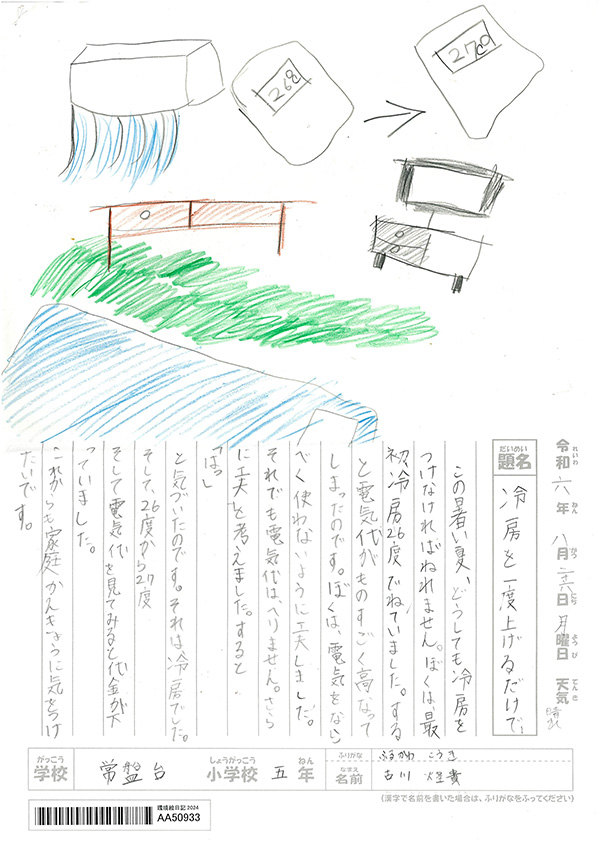 26℃
27℃
令和六年八月二六日月曜日 天気 晴れ
れいわ ねん がつ にち ようび てんき
だいめい
題名
冷房を一度上げるだけで、
この暑い夏、どうしても冷房を
つけなければねれません。ぼくは、最
初、冷房26度でねていました。する
と電気代がものすごく高なって
しまったのです。ぼくは、電気をなる
べく使わないように工夫しました。
それでも電気代は、へりません。さら
に工夫を考えました。すると
「はっ」
と気づいたのです。それは冷房でした。
そして、26度から27度
そして電気代を見てみると代金が下
っていました。
これからも家庭かんきょうに気をつけ
たいです。
がっこう
学校
常盤台
しょうがっこう
小学校
五
ねん
年
ふりがな
ふるかわ こうき
なまえ
名前
古川 煌貴
(漢字で名前を書いた場合は、ふりがなをふってください)
環境絵日記 2024
AA50933